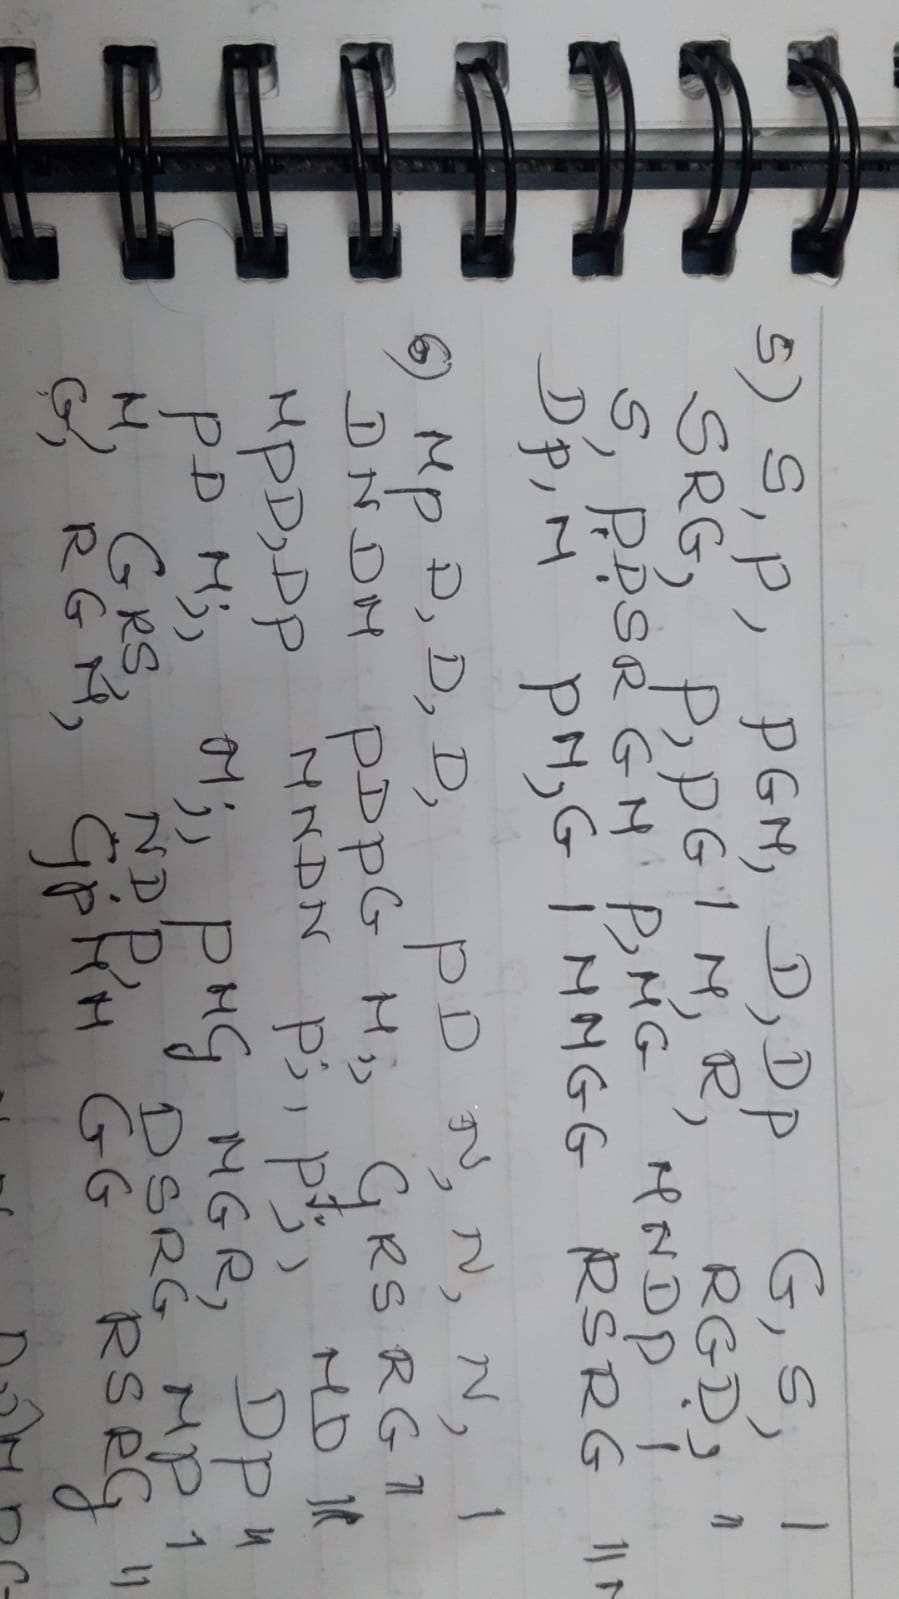 5) S, P, PGM, D, DP G, S, |
SRG, P, PG | M, R, RGD, ||
S, PDSRGM P, MG MNDP |
DP, M PM, G | MMGG RSRG ||
6) MPD, D, D, PD N, N, N, |
DNDM PDPG M;, GRSRG ||
MPD, DP MNDN P;, P;, MD ||
PDM;, M;, PMG MGR, DP ||
M, GRS, NDP, DSRG MP |
G, RGM, GPMM GG RSRG ||